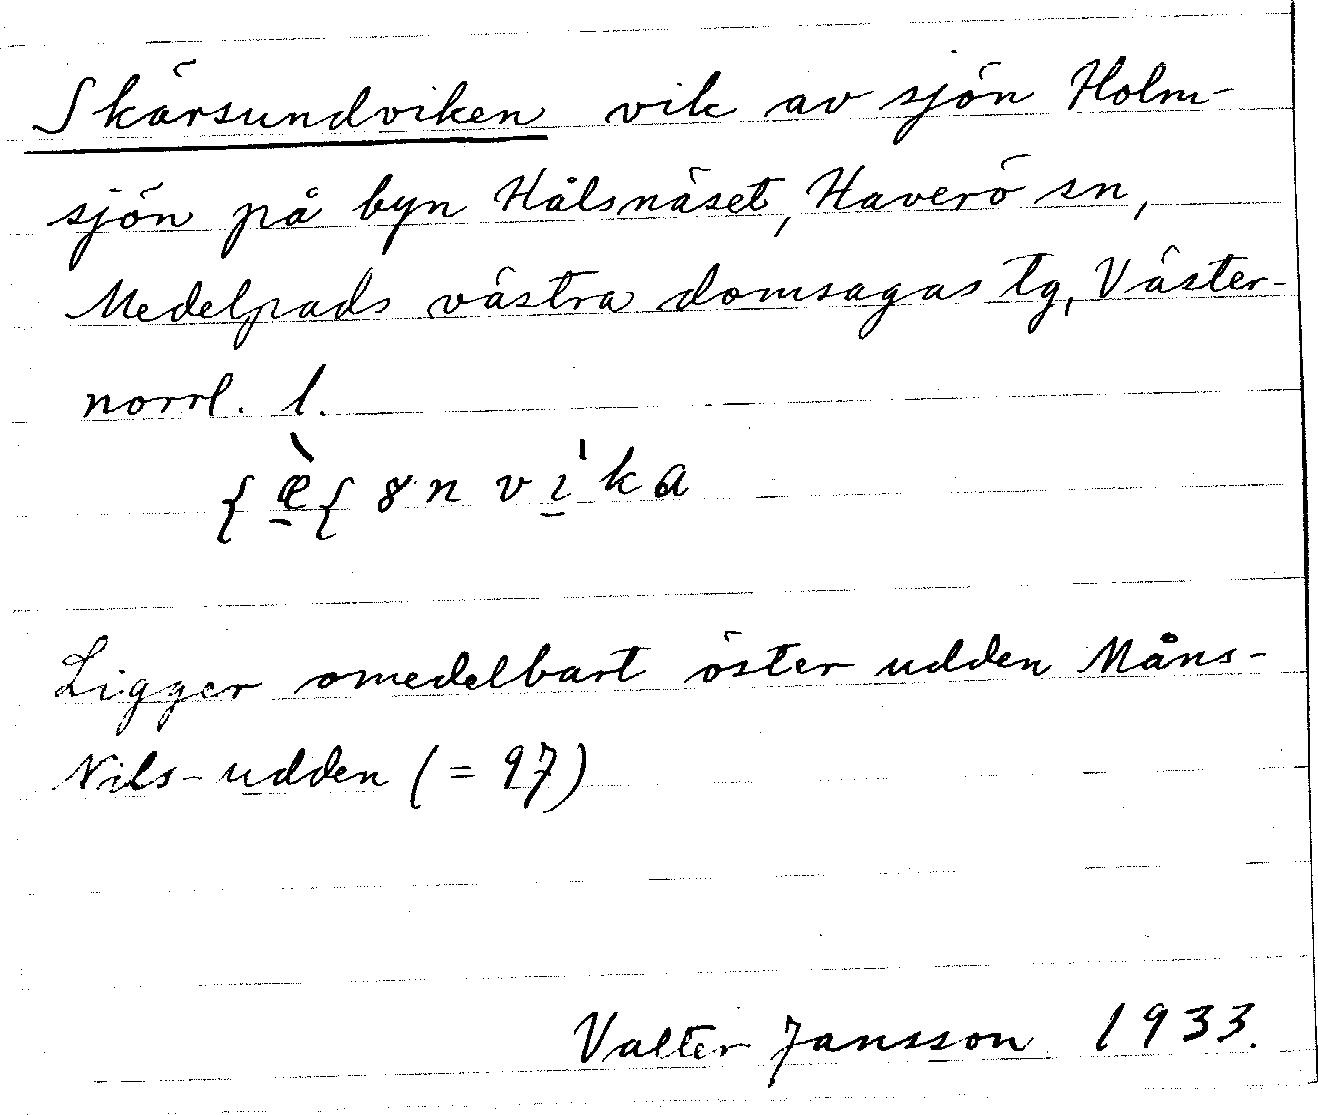 Skärsundviken vik av sjön Holm-
sjön på byn Hålsnäset, Haverö sn,
Medelpads västra domsagas tg, Väster-
norrl. l.
Ligger omedelbart öster udden Måns-
Nils-udden (= 97)
Valter Jansson 1933.